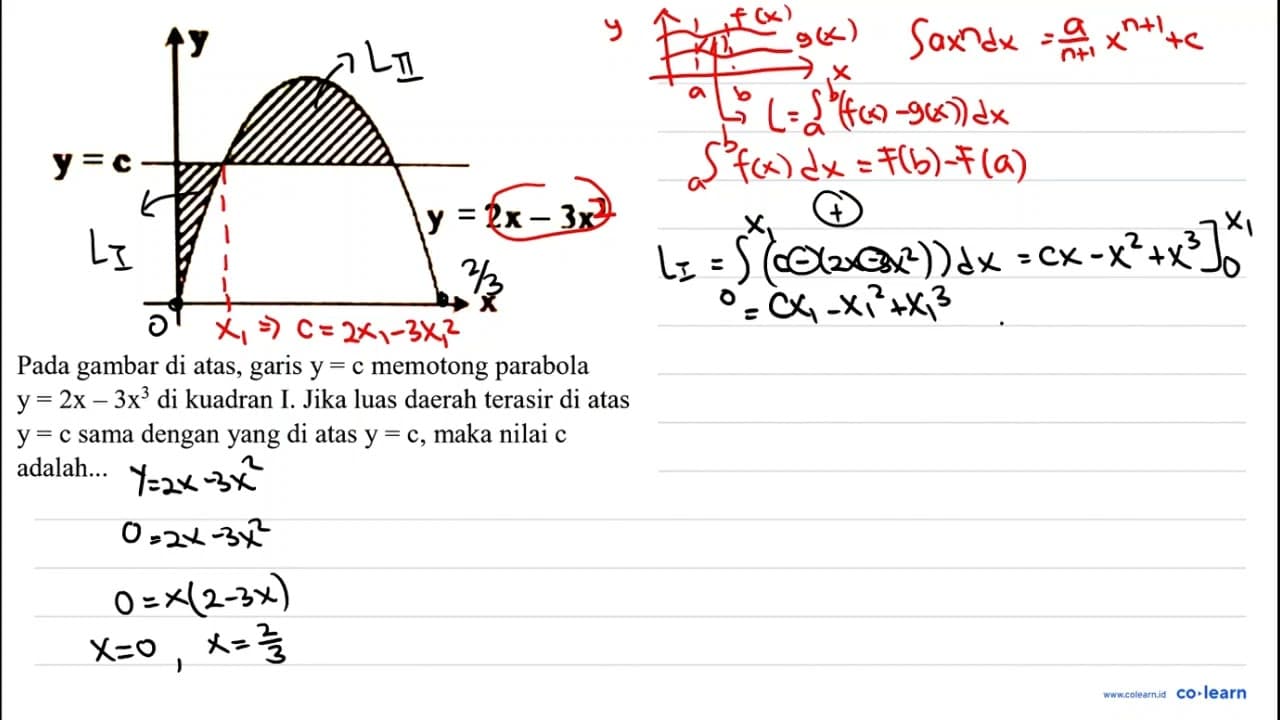 y
L_II
y = c
L_I
y = 2x – 3x²
2/3
x
0
x₁ ⇒ c = 2x₁ - 3x₁²
Pada gambar di atas, garis y = c memotong parabola
y = 2x – 3x³ di kuadran I. Jika luas daerah terasir di atas
y = c sama dengan yang di atas y = c, maka nilai c
adalah...
y = 2x - 3x²
0 = 2x - 3x²
0 = x(2 - 3x)
x = 0 , x = 2/3
y
f(x)
g(x)
x
a b
∫ axⁿ dx = a/(n+1) xⁿ⁺¹ + c
L = ∫ₐᵇ (f(x) - g(x)) dx
ₐ∫ᵇ f(x) dx = F(b) - F(a)
+
L_I = ₀∫ˣ¹ (c - (2x - 3x²)) dx = cx - x² + x³ ]₀ˣ¹
= cx₁ - x₁² + x₁³
www.colearn.id co·learn